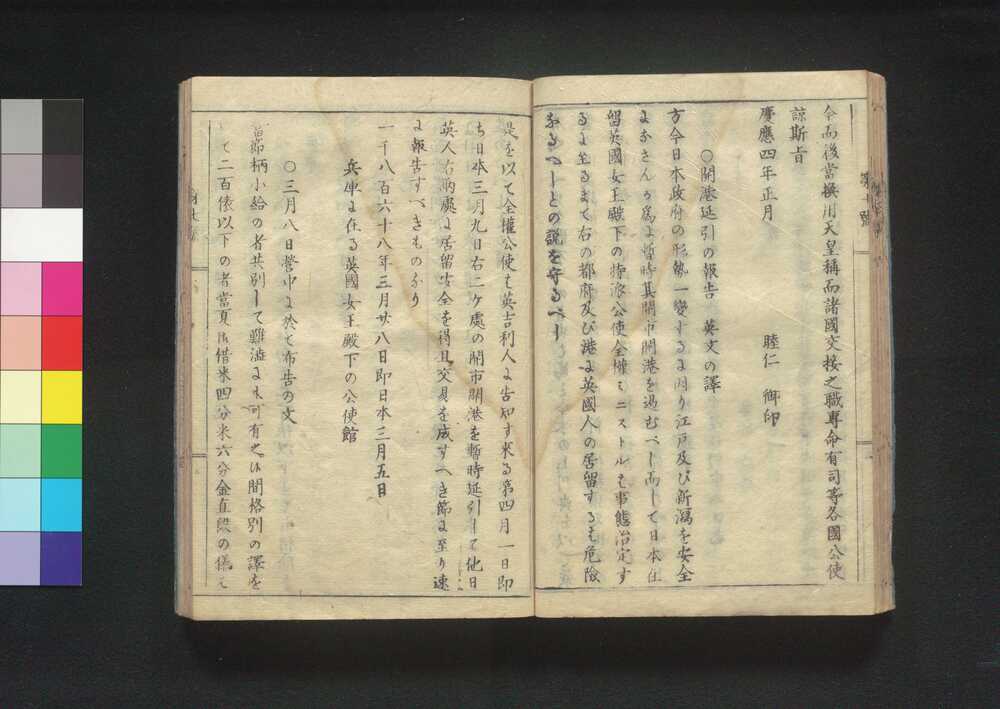 今而後當攝用天皇稱而諸國交接之職專命有司等各國公使
諒斯旨
慶應四年正月
睦仁 御印
○開港延引の報告 英文の譯
方今日本政府の形勢一變するに因り江戸及び新潟を安全
になさんが爲に暫時其開市開港を過むべし而して日本在
留英國女王殿下の特派公使全權ミニストルも事態治定す
るに至るまで右の都府及び港に英國人の居留するも危險
なるべしとの説を守るべし
是を以て全權公使も英吉利人に告知す來る第四月一日即
ち日本三月九日右二ケ處の開市開港を暫時延引して他日
英人右兩處に居留安全を得且交易を成すべき節に至り速
に報告すべきものなり
一千八百六十八年三月廿八日即日本三月五日
兵庫に在る英國女王殿下の公使館
○三月八日營中に於て布告の文
當節柄小給の者共別して難澁にも可有之候間格別の譯を
て二百俵以下の者當夏御借米四分米六分金直段の儀